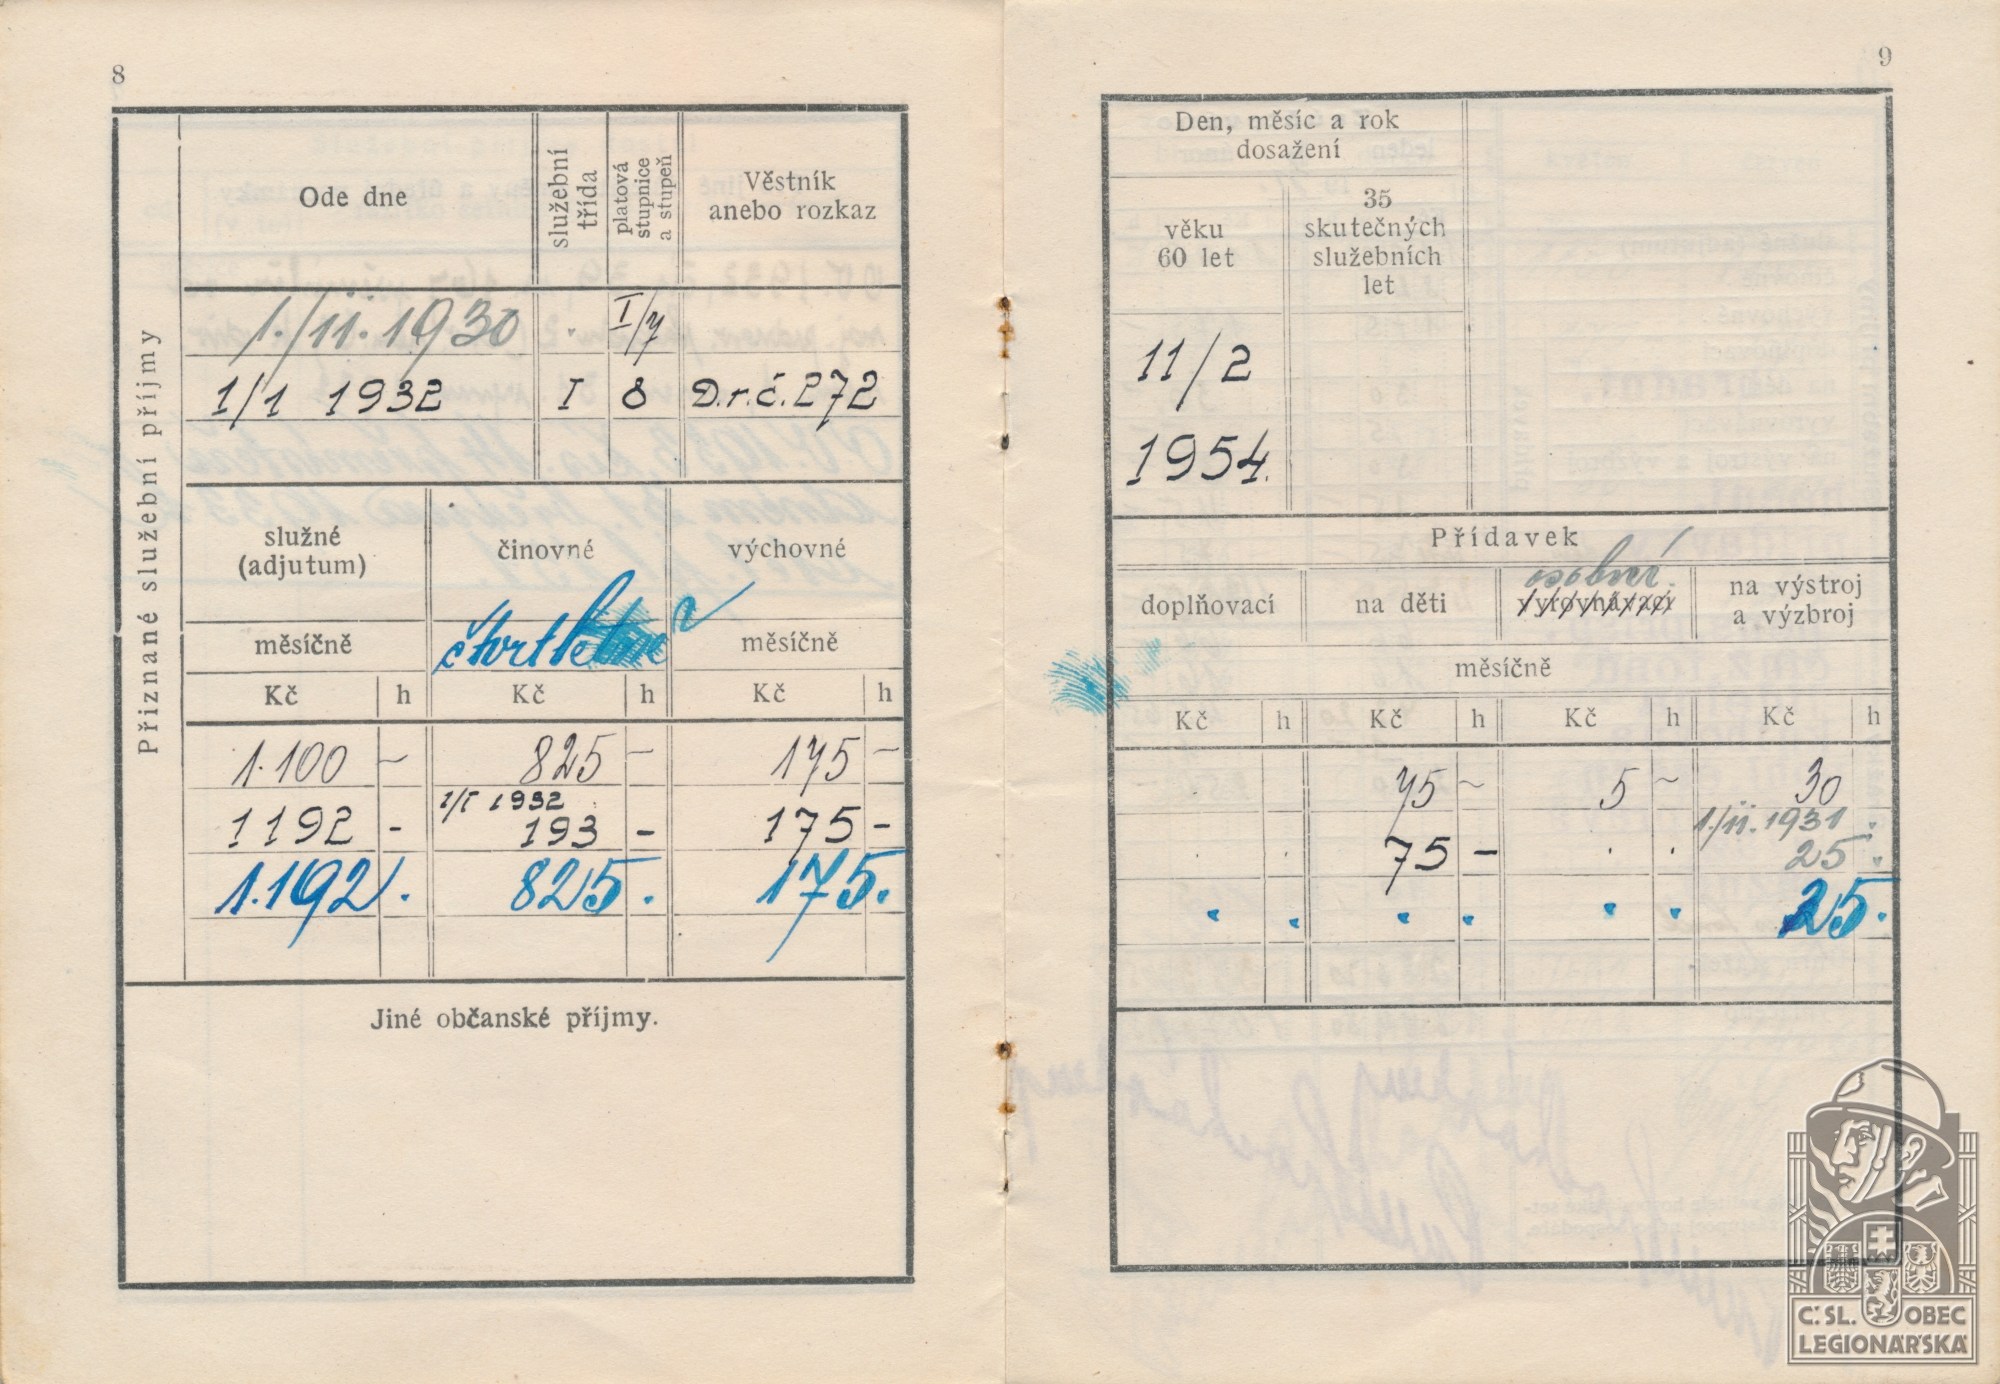 8
Přiznané služební příjmy
Ode dne
služební třída
platová stupnice a stupeň
Věstník
anebo rozkaz
1./ii. 1930 . I/7
1/1 1932 I 8 D.r.č. 272
služné
(adjutum)
činovné
výchovné
měsíčně čtvrtletně měsíčně
Kč h Kč h Kč h
1.100 – 825 – 175 –
1/I 1932
1192 - 193 - 175 -
1.192 . 825 . 175 .
Jiné občanské příjmy.
9
Den, měsíc a rok
dosažení
věku
60 let
35
skutečných
služebních
let
11/2
1954.
Přídavek
doplňovací
na děti
osobní
vyrovnávací
na výstroj
a výzbroj
měsíčně
Kč h Kč h Kč h Kč h
75 ~ 5 ~ 30
1./ii. 1931 .
. . 75 – . . 25 .
. . . . . . 25 .
Č. SL. OBEC
LEGIONÁŘSKÁ